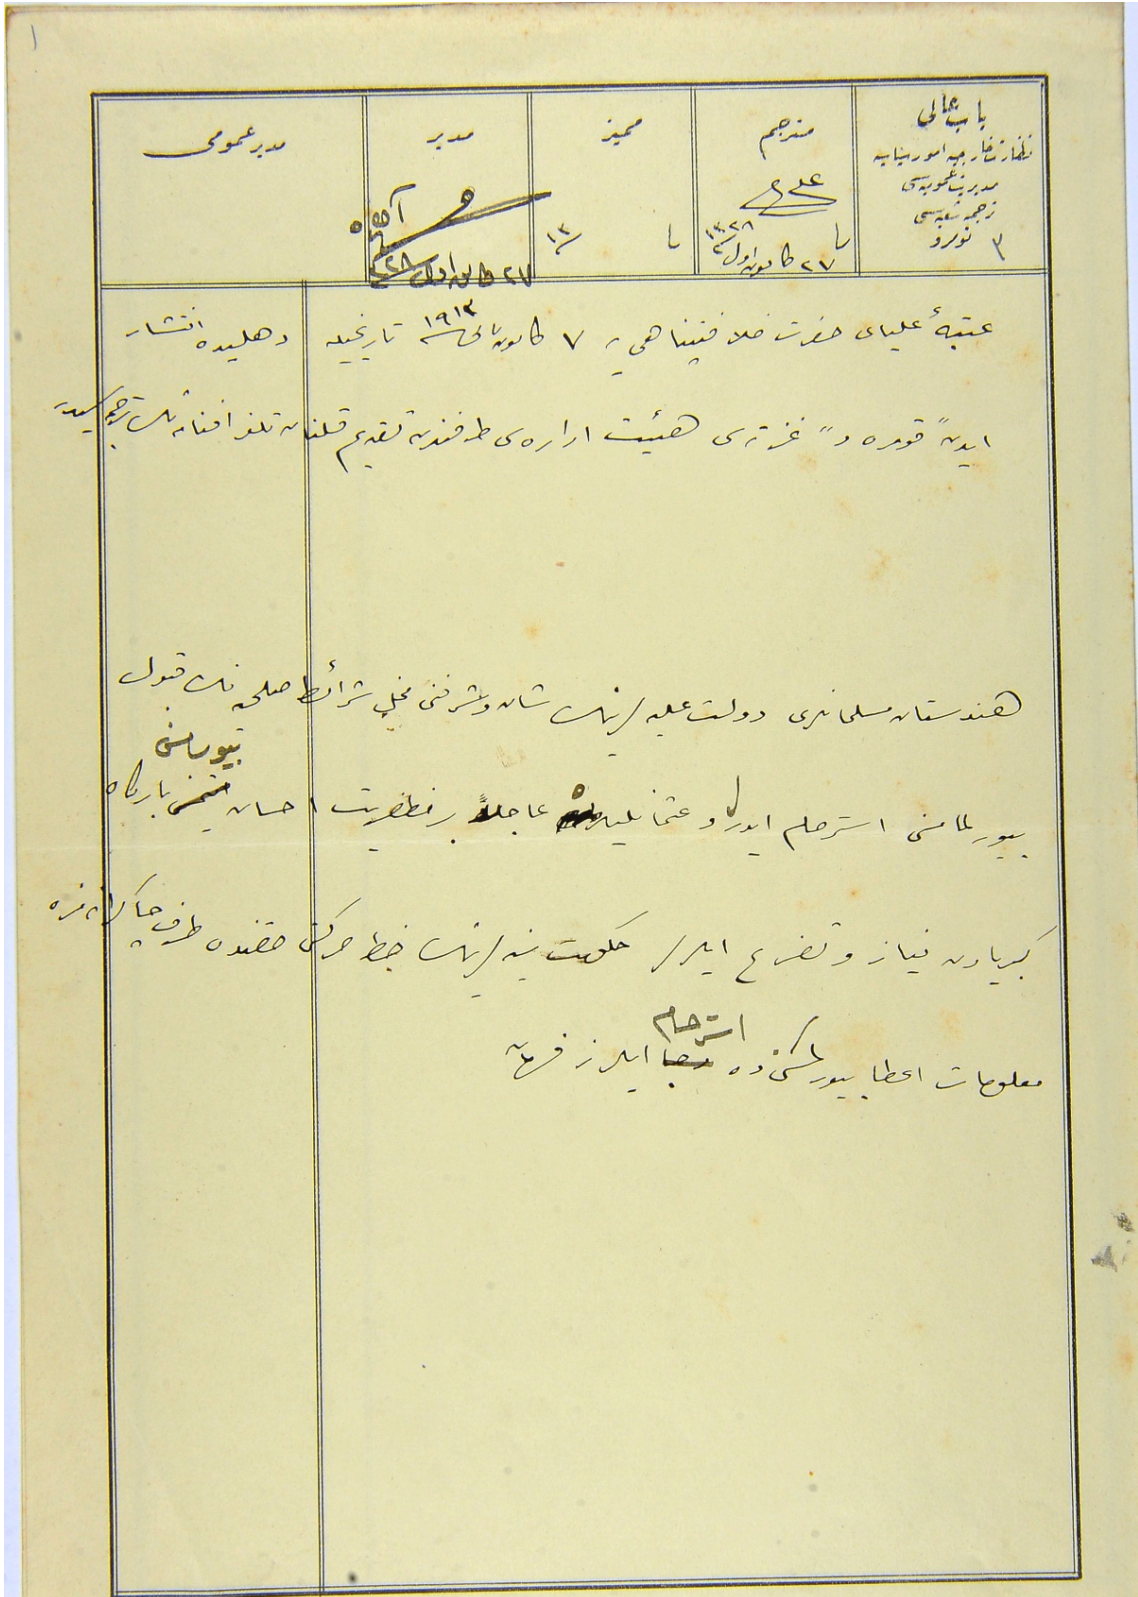 ١
باب عالی
نظارت خارجیه امور سیاسیه
مدیریت عمومیه‌سی
ترجمه شعبه‌سی
نومرو ٣
مترجم
علی
فی ٢٧ كانون اول سنه ١٣٢٨
ممیز
فی سنه ١٣
مدیر
٢٧ كانون اول سنه ٣٢٨
مدیر عمومی
عتبۀ علیای حضرت خلافتپناهی‌یه ٧ كانون ثانی سنه ١٩١٣ تاریخیله دهلیده انتشار
ایدن "قومره د" غزته‌سی هیئت اداره‌سی طرفندن تقدیم قلنان تلغرافنامه‌نك ترجمه‌سیدر
هندوستان مسلمانلری دولت علیه‌لرینك شان و شرفنی مخل شرائط صلحیه‌نك قبول
بیورلمامسنی استرحام ایدر و عثمانلیلره عاجلاً بر مظفریت احسان بیورمسنی بارگاه
كبریادن نیاز و تضرع ایلرلر حكومت سنیه‌لرینك خط حركتی حقنده طرف چاكرانه‌مزه
معلومات اعطا بیورلمسنی ده استرحام ایلرز فرمان